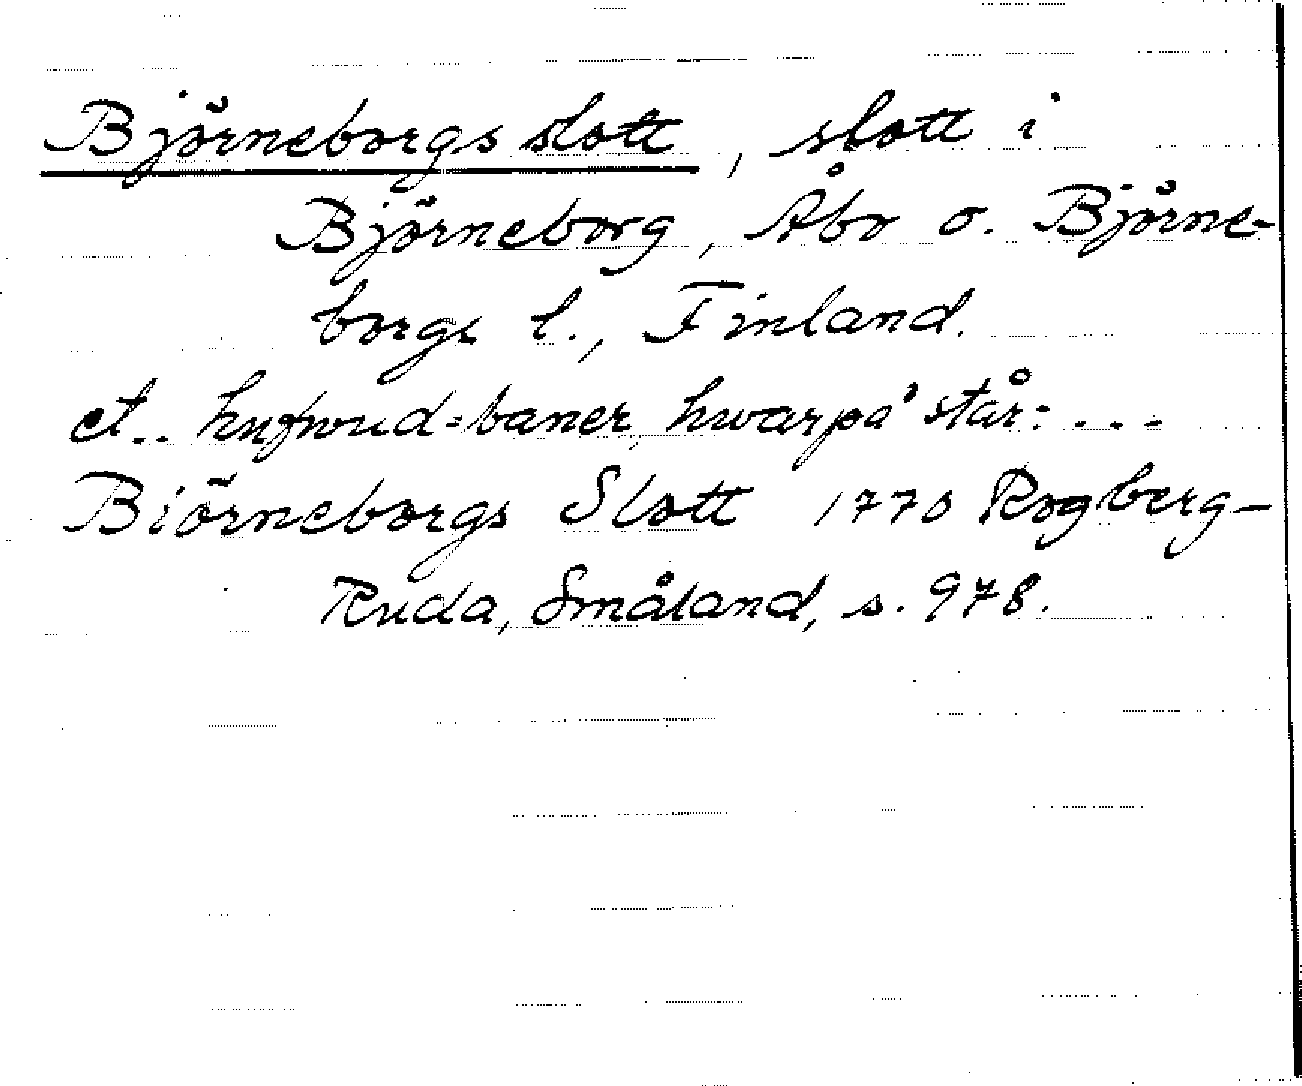 Björneborgs slott, slott i
Björneborg, Åbo o. Björne-
borgs l., Finland.
et.. hufwud=baner, hwarpå står: ...
Biörneborgs Slott 1770 Rogberg-
Ruda, Småland, s. 978.